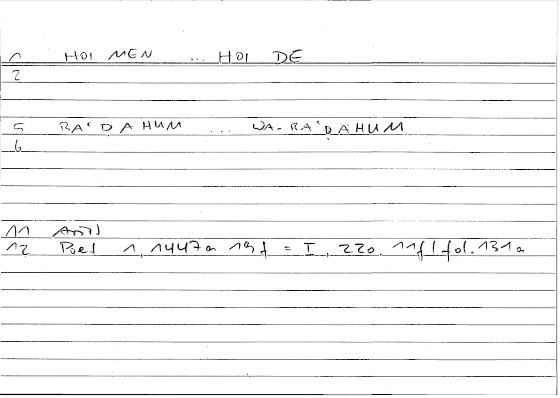 1 HOI MEN ... HOI DE
2
5 BAʿDAHUM ... WA-BAʿḌAHUM
6
11 Arist
12 Poet 1, 1447a 19f = I, 220. 11f / fol. 131a